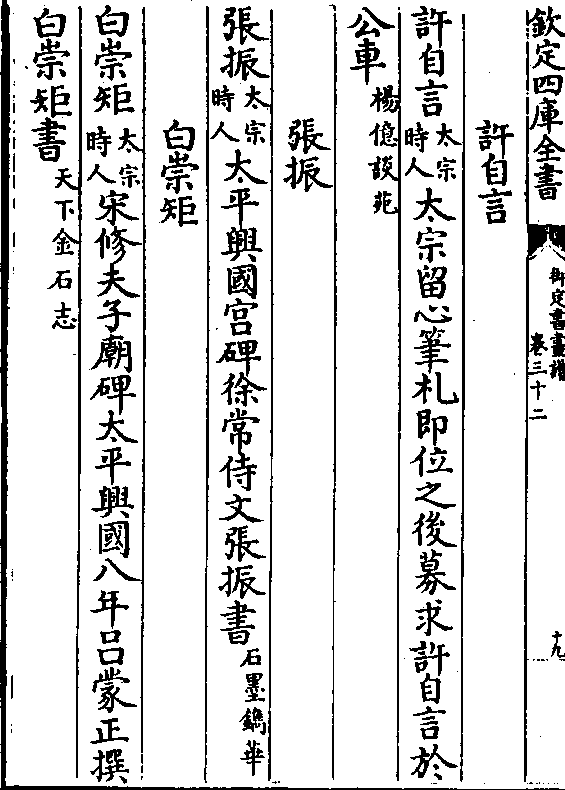 欽定四庫全書
御定書畫譜
卷三十二
十九
許自言
許自言太宗時人太宗留心筆札即位之後募求許自言於
公車楊億談苑
張振
張振太宗時人太平興國宮碑徐常侍文張振書石墨鐫華
白崇矩
白崇矩太宗時人宋修夫子廟碑太平興國八年呂蒙正撰
白崇矩書天下金石志